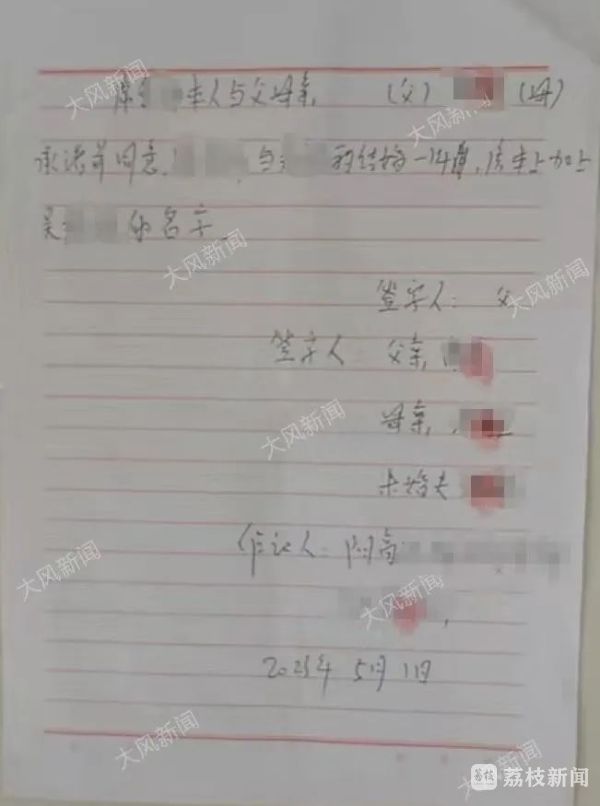 本人与父母亲 (父) (母)
承诺并同意 与 的结婚一年后,房本上加上
吴 的名字
签字人: 父
签字人 父亲
母亲
未婚夫
作证人:
2025年5月1日
大风新闻
大风新闻
大风新闻
大风新闻
大风新闻
大风新闻
大风新闻
大风新闻
大风新闻
大风新闻
荔枝新闻